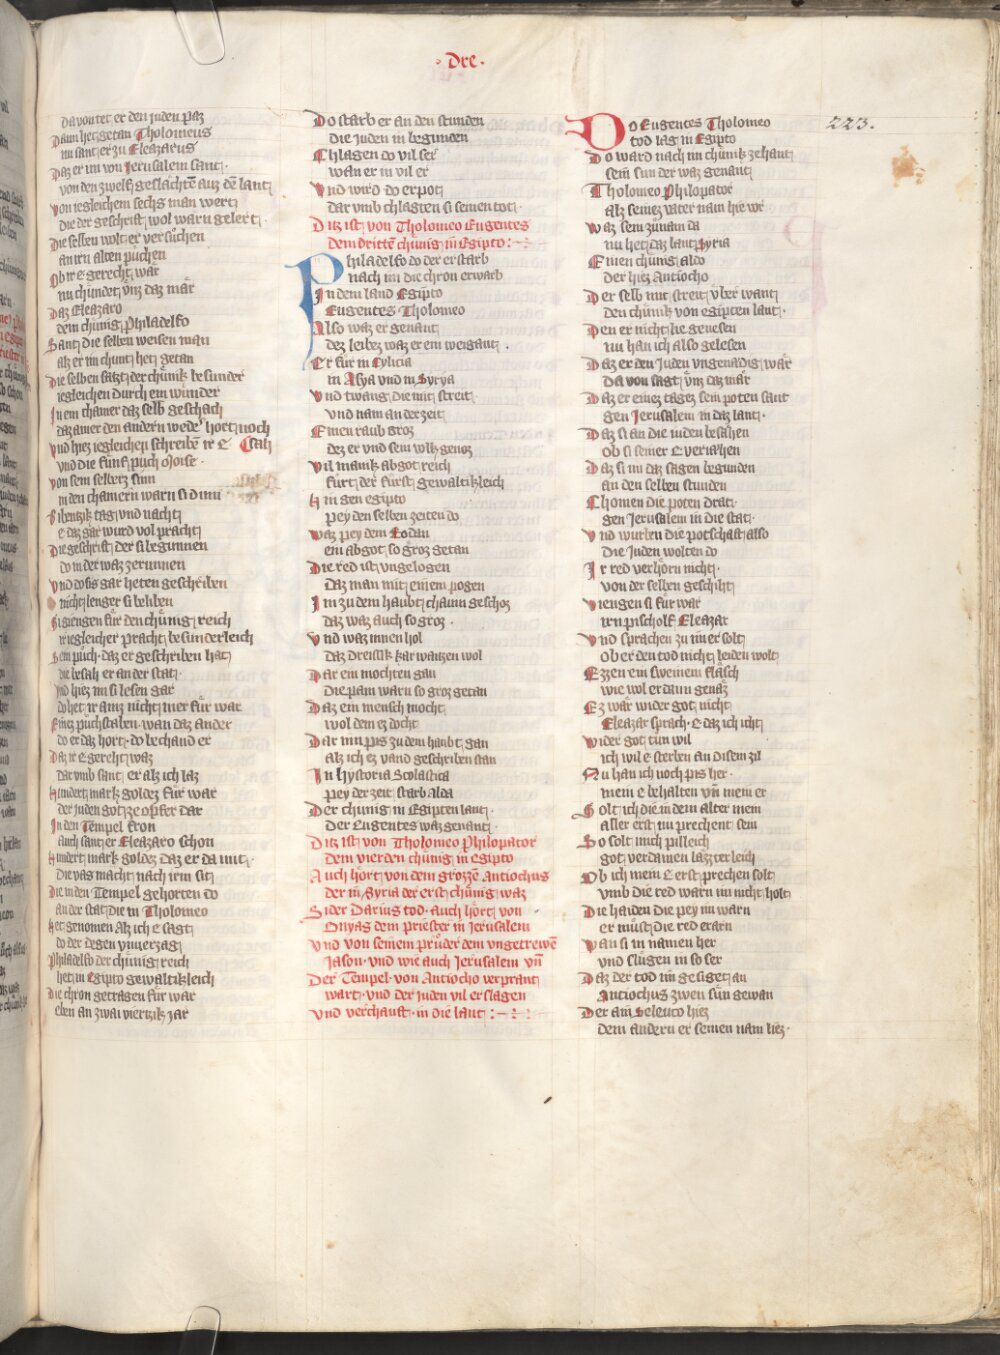 · Dre ·
223.
da von tet er den juden paz
Dann het getan Tholomeus
nu sant er zu Eleazarus
Daz er im von Jerusalem sant ·
von den zwelf geslächten auz dē lant
Von iegleichem sechs man wert
die der geschrift wol warn gelert ·
Die selben wolt er versůchen
an irn alten půchen
Ob ir e gerecht wär
nu chundet vns daz mär
Daz Eleazaro
dem chünig Philadelfo
Sant die selben weisen man
alz er im chunt het getan
Die selben satzt der chünik besunder
iegleichen durch ein wunder
In ein chamer daz selb geschach
daz ainer den andern weder hort noch sach
Vnd hiez iegleichen schreiben ir E
vnd die fünf půch Moise ·
Von sein selbers sinn
in den chamern warn si d inn
Sibentzik tag vnd nacht
e daz gar wurd volpracht
Die geschrift der si begunnen
do in der waz zerunnen
Vnd do sis gar heten geschriben
nicht lenger si beliben
Si giengen für den chünig reich
ir iegleicher pracht besunderleich
Sein půch · daz er geschriben hat
die besach er an der stat
Vnd hiez im si lesen gar
do het ir ainz nicht mer für war
Einez půchstaben · wan daz ander
do er daz hort · do bechand er
Daz ir e gerecht waz
dar vmb sant er alz ich laz
Hundert mark goldez für war
der juden got ze opfer dar
In den Tempel fron
auch sant er Eleazaro schon
Hundert mark goldez daz er da mit
die vas macht nach irm sit
Die in den Tempel gehorten do
an der stat die in Tholomeo
Het genomen alz ich e sagt
do der degen vnuerzagt
Philadelfo der chünig reich
het in Egipto gewaltikleich
Die chron getragen für war
eben an zwai viertzik jar
Do starb er an den stunden
die juden in begunden
Chlagen do vil ser
wan er in vil er
Vnd wird do erpot
dar vmb chlagten si seinen tot ·
Ditz ist von Tholomeo Eugentes
dem dritten chünig in Egipto : ~
Philadelfo do der erstarb
nach im die chron erwarb
In dem land Egipto
Eugentes · Tholomeo
Also waz er genant
dez leibez waz er ein weigant ·
Er fůr in Cylicia
in Asya vnd in Syrya
Vnd twang die mit streit
vnd nam an der zeit
Einen raub groz
dez er vnd sein volk genoz
Vil manik abgot reich
fürt der fürst gewaltikleich
Hin gen egipto
pey den selben zeiten do
Waz pey dem Rodan
ein abgot so groz getan
Die red ist vngelogen
daz man mit einem pogen
Im zu dem haubt chaum geschoz
daz waz auch so groz ·
Vnd waz innen hol
daz dreissik kar waitzen wol
Dar ein mochten gan
die pain warn so groz getan
Daz ein mensch mocht
wol dem ez docht
Dar inn pis zu dem haubt gan
alz ich ez vand geschriben stan
In hystoria Scolastica
pey der zeit starb alda
Der chünig in Egipten lant ·
der Eugentes waz genant ·
Ditz ist von Tholomeo Philopator
dem vierden chünig in Egipto
Auch hört von dem grozzē Antiochus
der in Syria der erst chünig waz
Sider Darius tod · auch hört von
Onyas dem priester in Jerusalem
Vnd von seinem průder dem vngetrewē
Jason · vnd wie auch Jerusalem vn̄
Der Tempel · von Antiocho verprant
wart · vnd der juden vil erslagen
Vnd verchauft · in die lant : ~ : ~
Do Eugentes Tholomeo
tod lag in Egipto
Do ward nach im chünik zehant
sein sun der waz genant
Tholomeo Philopator
alz seinez vater nam hie vor
Waz sein zůnam da
nu het daz lant Syria
Einen chünig also
der hiez Antiocho
Der selb mit streit vber want
den chünik von egipten lant ·
Den er nicht lie genesen
nu han ich also gelesen
Daz er den juden vngenädig wär
da von sagt vns daz mär
Daz er einez tagez sein poten sant
gen Jerusalem in daz lant ·
Daz si an die iuden besähen
ob si seiner E veriähen
Daz si im daz sagen begunden
an den selben stunden
Chomen die poten drat ·
gen Jerusalem in die stat ·
Vnd wurben die potschaft also
die juden wolten do
Ir red verhörn nicht ·
von der selben geschiht
Viengen si für war
irn pischolf Eleazar
Vnd sprachen zu im er solt
ob er den tod nicht leiden wolt
Ezzen ein sweinein flaisch
wie wol er dann genaz
Ez wär wider got nicht
Eleazar sprach · e daz ich icht
Wider got tůn wil
ich wil e sterben an disem zil
Nu han ich noch pis her ·
mein e behalten vn̄ mein er
Solt ich die in dem alter mein
aller erst nu prechent sein
So solt mich pilleich
got verdamen lazzterleich
Ob ich mein E erst prechen solt
vmb die red warn im nicht holt
Die haiden die pey im warn
er můst die red erarn
Wan si in namen her
vnd slůgen in so ser
Daz der tod im gesiget an
Antiochus zwen sün gewan
Der ain Seleuco hiez
dem andern er seinen nam liez ·